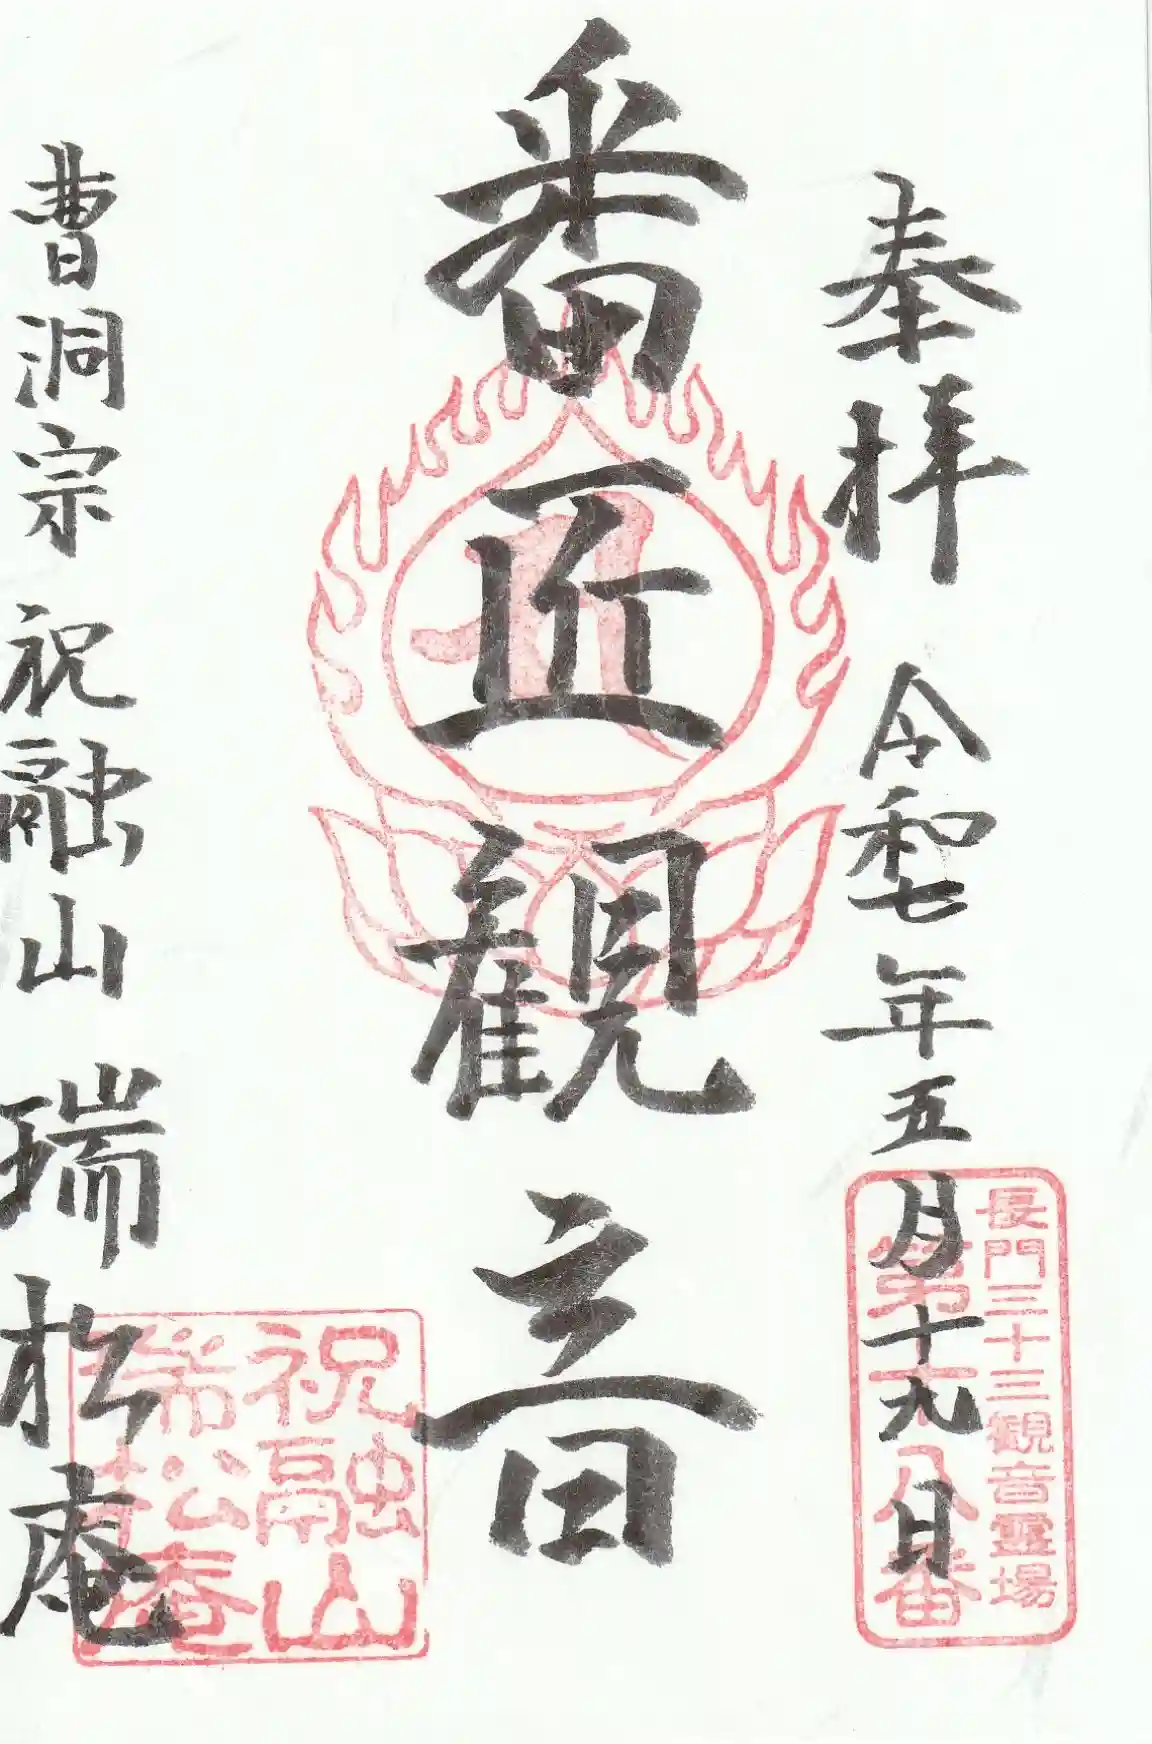 奉拝 令和七年五月十九日
長門三十三観音霊場
第十八番
番匠観音
曹洞宗 祝融山 瑞松庵
祝融山
瑞松庵